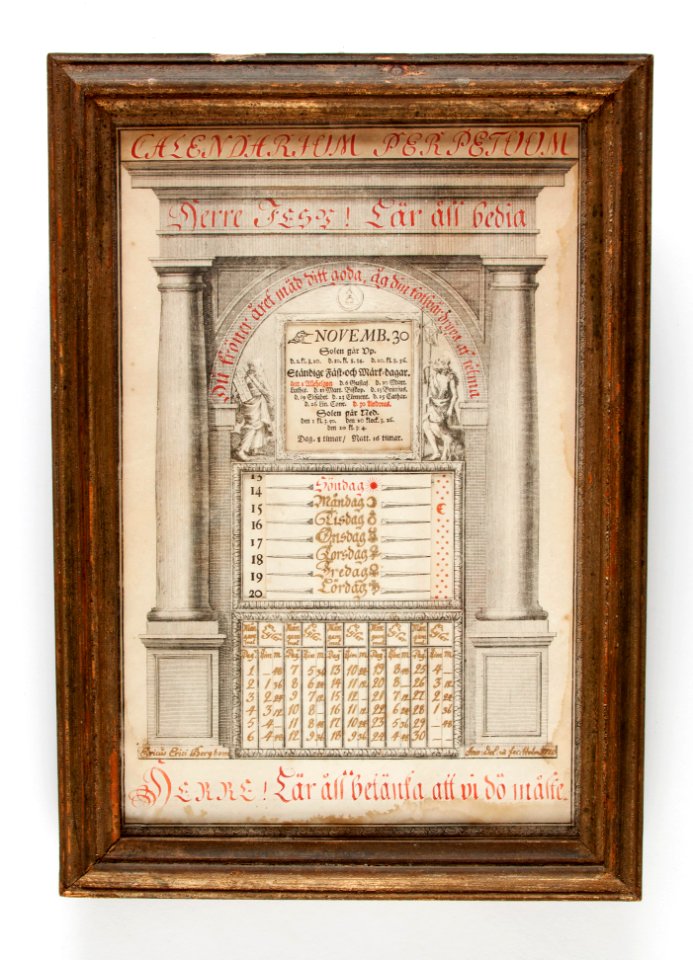 CALENDARIUM PERPETUUM
Herre JESU! Lär åss bedia
Du kröner året mäd ditt goda, åg din fotspår drypa af fetma
NOVEMB. 30
Solen går Vp.
d. 1. kl. 8. 10. d. 10. kl. 8. 24. d. 20. kl. 8. 36.
Ständige Fäst-och Märk-dagar.
den 1 Allhelgon d. 6 Gustaf d. 10 Mårt.
Luther. d. 11 Mart. Biskop. d. 13 Brictius.
d. 19 Elisabet. d. 23 Clement. d. 25 Cathar.
d. 26 Lin. Conr. d. 30 Andreas.
Solen går Ned.
den 1 kl. 3. 50. den 10 klock. 3. 26.
den 20 kl. 3. 4.
Dag. 8 timar/ Natt. 16 timar.
13
14 Söndag
15 Måndag
16 Tisdag
17 Onsdag
18 Torsdag
19 Fredag
20 Lördag
Dag Tim M. Dag Tim M. Dag Tim M. Dag Tim M. Dag Tim M.
1 – 48 7 5 36 13 10 24 19 8 12 25 4 –
2 1 36 8 6 24 14 11 12 20 8 – 26 3 12
3 2 24 9 7 12 15 12 – 21 7 12 27 2 24
4 3 12 10 8 – 16 11 12 22 6 24 28 1 36
5 4 – 11 8 48 17 10 24 23 5 36 29 – 48
6 4 48 12 9 36 18 9 36 24 4 48 30 –
Ericus Erici Bergbom
HERRE! Lär åss betänka att vi dö måste.